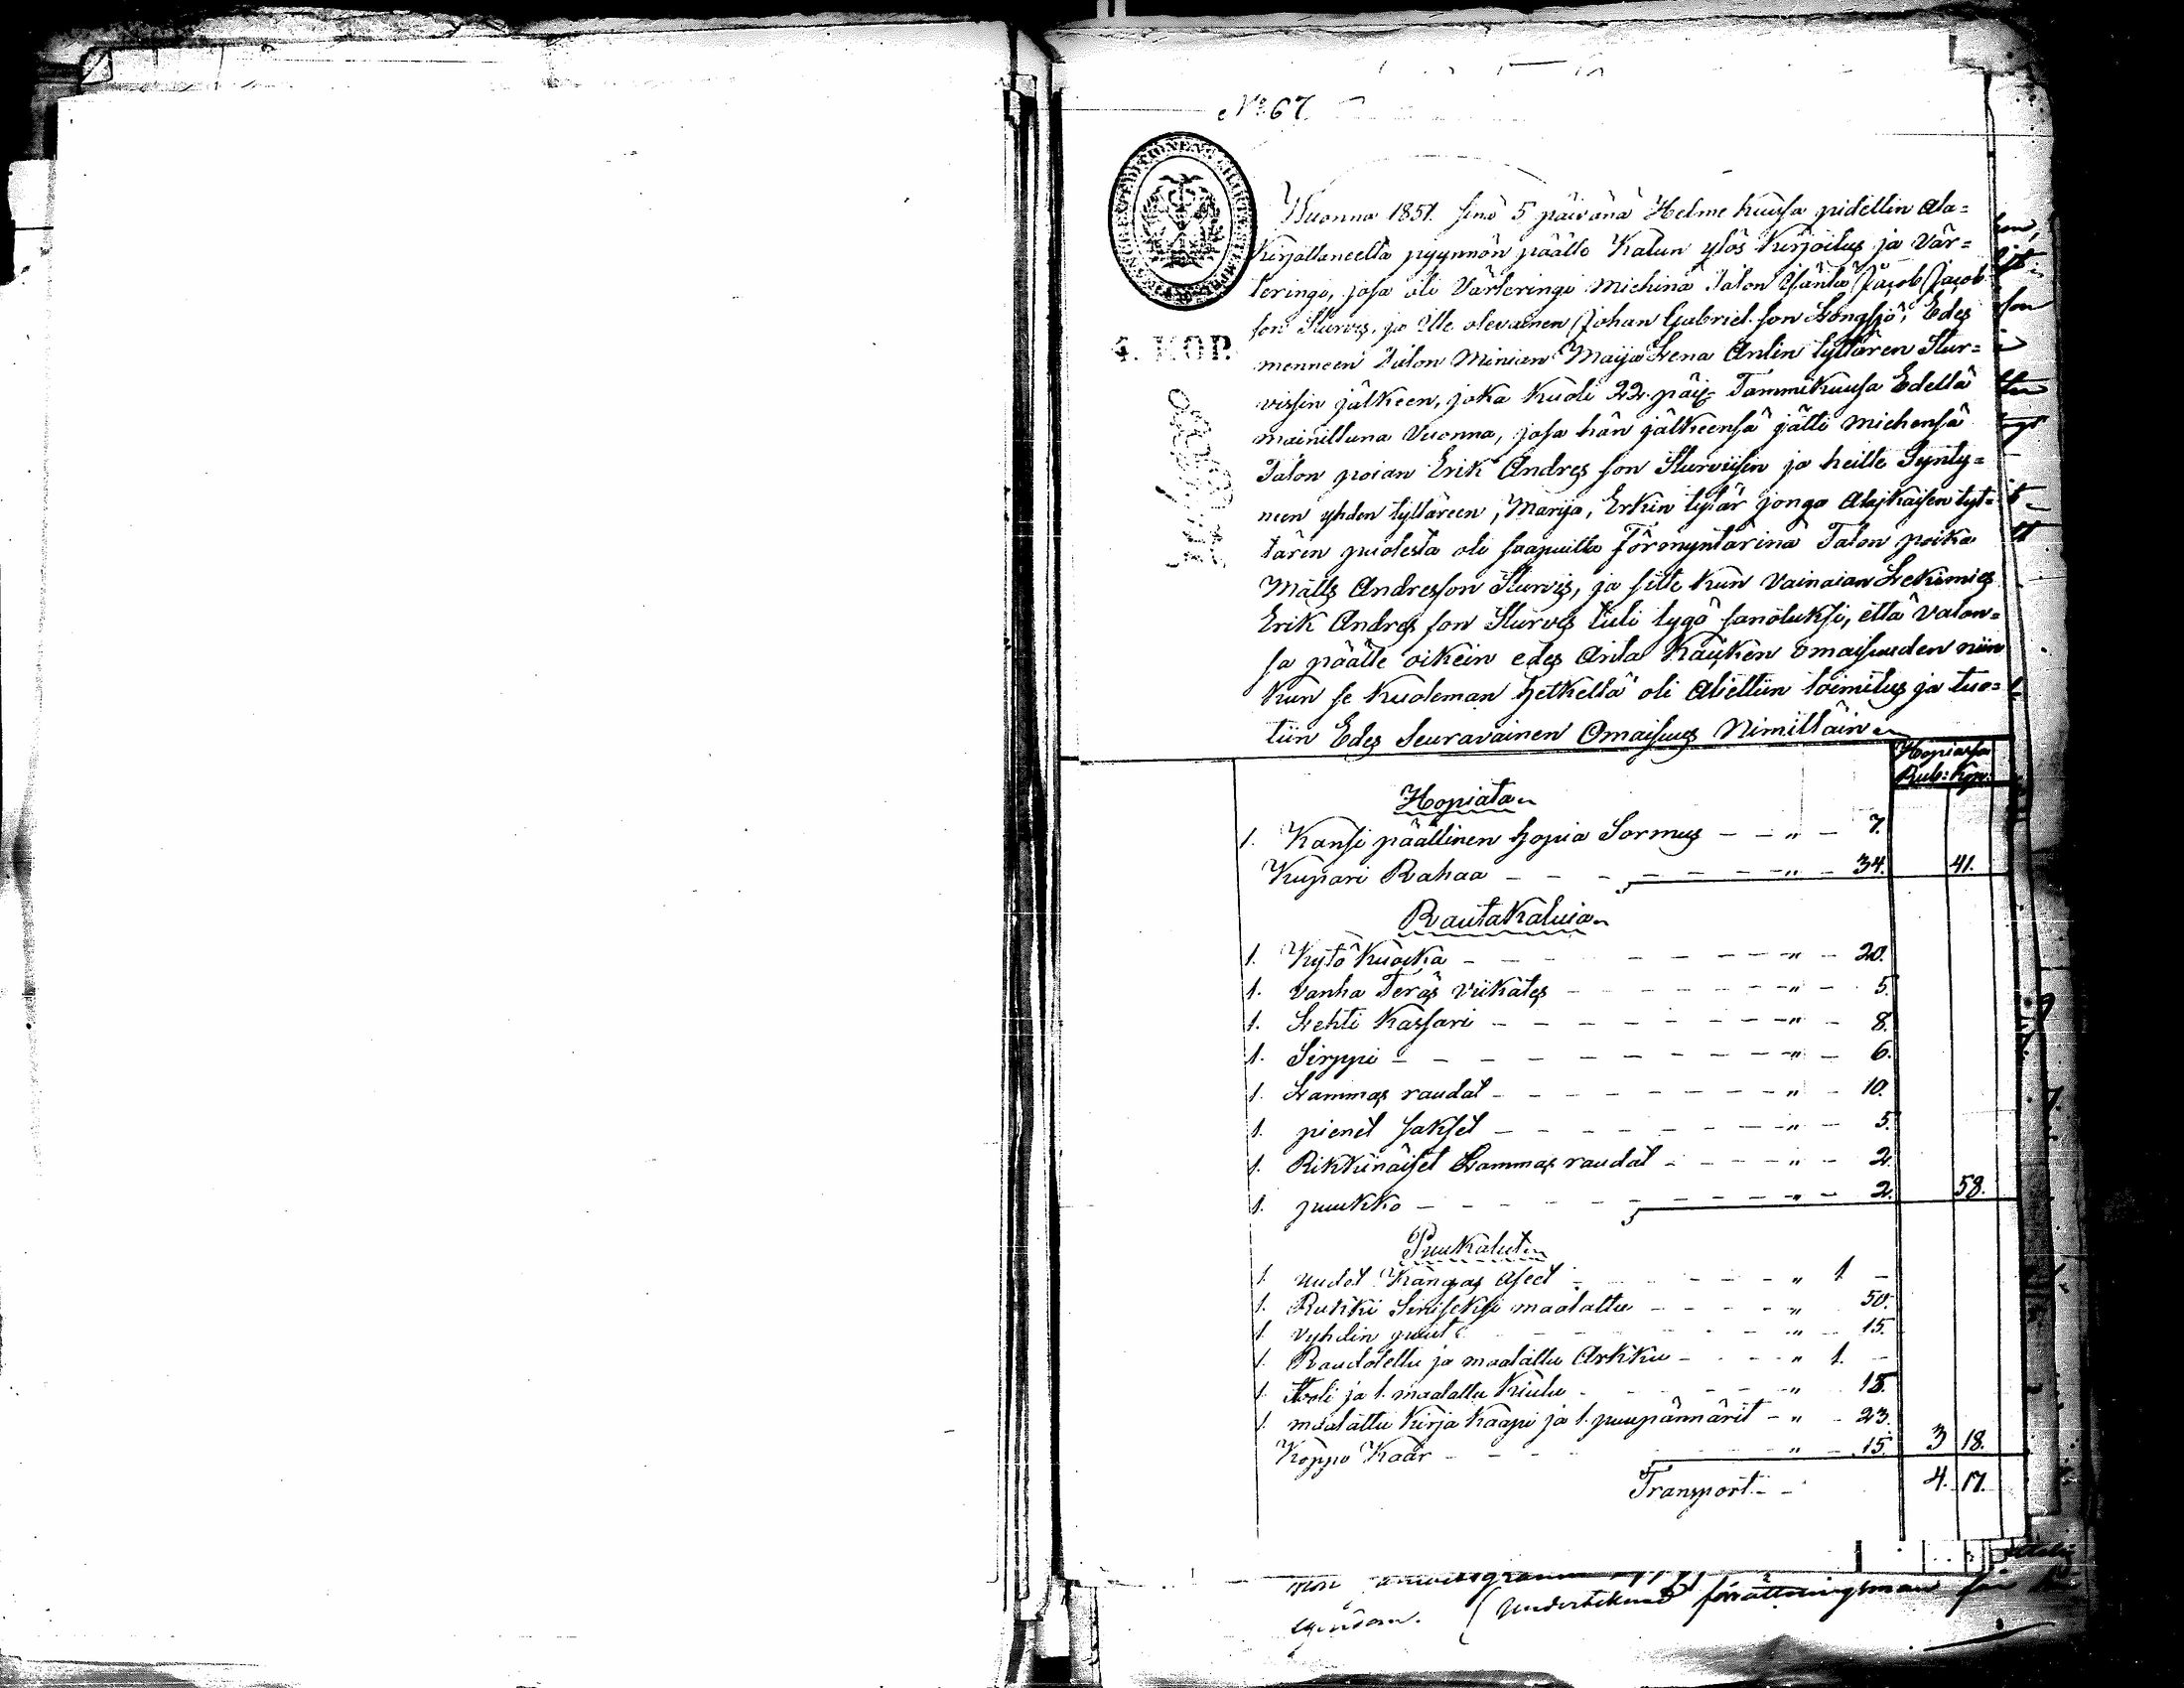 No 67.
4. KOP.
Wuonna 1851. sinä 5 päivänä Helme kuusa pidettin Ala=
kirjottaneelta pyynnön päälle Kalun ylös kirjoitus ja Vär=
teringi, josa oli Värteringi miehinä Talon Isäntä Jacob Jacob
son Sturvis, ja Itte olevainen Johan Gabriel son Longsjö, Edes
menneen Talon Minian Maija Lena Antin tyttären Stur=
vissin jälkeen, joka kuoli 22. päiv Tammikuusa Edellä
mainittuna Vuonna, josa hän jälkeensä jätti miehensä
Talon poian Erik Andres son Sturvisin ja heille Synty=
neen yhden tyttäreen, Marija, Erkin tytär jonga Alajkäisen tyt=
tären puolesta oli saapuilla Förmyntärinä Talon poika
Matts Andresson Sturvis, ja sitte kun vainaian Leskimies
Erik Andres son Sturvis tuli tygö sanotuksi, että valan=
sa päälle oikein edes Anta kaiken omaisuuden niin
kun se kuoleman hetkellä oli Alettiin toimitus ja tuo=
tiin Edes Seuravainen Omaisuus Nimittäin
Hopiassa
Rub: Kop:
Hopiata
1. Kansi päällinen hopia Sormus - - " - 7.
Kupari Rahaa - - - - - - " - 34. 41.
Rautakaluja
1. Kytö Kuocka - - - - - " - 20.
1. vanha Teräs viikates - - - - - " - 5.
1. Lehti kassari - - - - - " - 8.
1. Sirppi - - - - - " - 6.
1. Lammas raudat - - - - - " - 10.
1. pienet sakset - - - - - " - 5.
1. Rikkinäiset Lammas raudat - - - " - 2.
1. puukko - - - - - " - 2. 58.
Puukalut
1. uudet Kangas Aseet - - - - " 1 -
1. Rukki Siniseksi maalattu - - - - " 50.
1. vyhdin puut - - - - " - 15.
1. Raudotettu ja maalattu Arkku - - - " 1. -
1. ja 1. maalattu kiulu - - - " 15.
1. maalattu kirja kaapi ja 1. puupännärit - " - 23.
Koppo Käär - - - - " - 15. 3 18.
Transport - - 4. 17.
egendom. Undertecknad förrättningsman